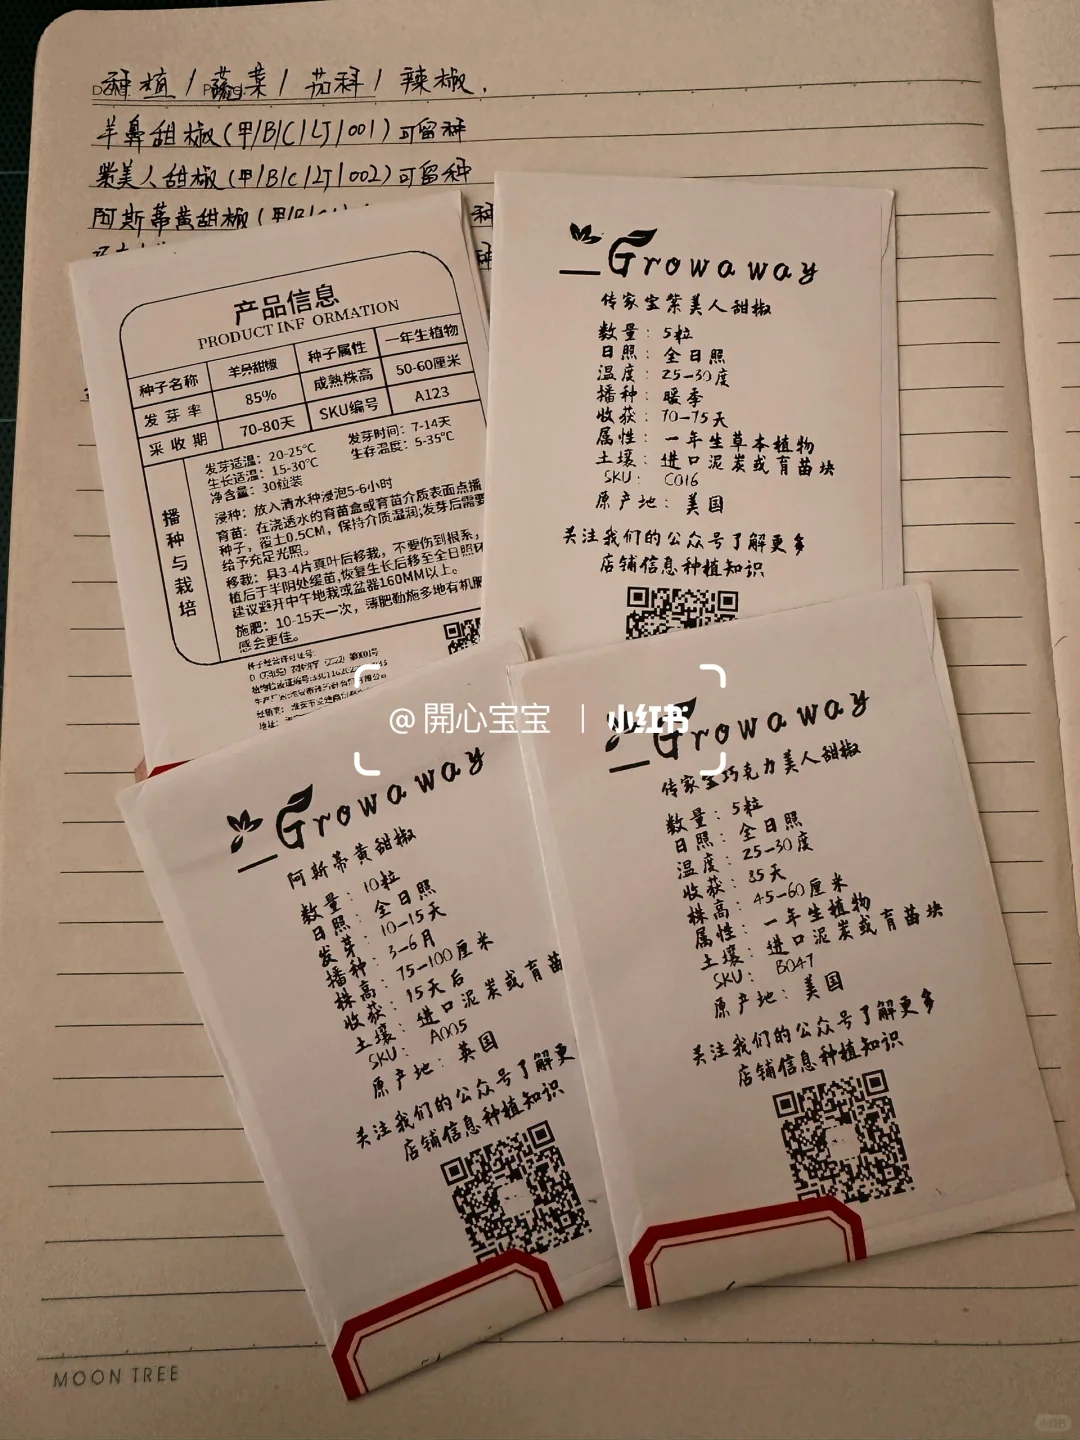 种植/蔬菜/茄科/辣椒.
羊鼻甜椒(甲/B/C/LJ/001)可留种
紫美人甜椒(甲/B/C/LJ/002)可留种
阿斯蒂黄甜椒(甲/B/C
种
产品信息
PRODUCT INFORMATION
种子名称 羊角甜椒 种子属性 一年生植物
发芽率 85% 成熟株高 50-60厘米
采收期 70-80天 SKU编号 A123
播种与栽培
发芽适温：20-25℃ 发芽时间：7-14天
生长适温：15-30℃ 生存温度：5-35℃
净含量：30粒装
浸种：放入清水种浸泡5-6小时
育苗：在浇透水的育苗盒或育苗介质表面点播
种子，覆土0.5CM，保持介质湿润;发芽后需要
给予充足光照。
移栽：具3-4片真叶后移栽，不要伤到根系，
植后于半阴处缓苗,恢复生长后移至全日照环
建议避开中午地栽或盆器160MM以上。
施肥：10-15天一次，薄肥勤施多地有机肥
感会更佳。
种子经营许可证号:
Growaway
传家宝紫美人甜椒
数量：5粒
日照：全日照
温度：25-30度
播种：暖季
收获：70-75天
属性：一年生草本植物
土壤：进口泥炭或育苗块
SKU：C016
原产地：美国
关注我们的公众号了解更多
店铺信息种植知识
@開心宝宝 | 小红书
Growaway
阿斯蒂黄甜椒
数量：10粒
日照：全日照
发芽：10-15天
播种：3-6月
株高：75-100厘米
收获：15天后
土壤：进口泥炭或育苗
SKU：A005
原产地：英国
关注我们的公众号了解更
店铺信息种植知识
Growaway
传家宝巧克力美人甜椒
数量：5粒
日照：全日照
温度：25-30度
收获：85天
株高：45-60厘米
属性：一年生植物
土壤：进口泥炭或育苗块
SKU：B047
原产地：美国
关注我们的公众号了解更多
店铺信息种植知识
MOON TREE
小红书